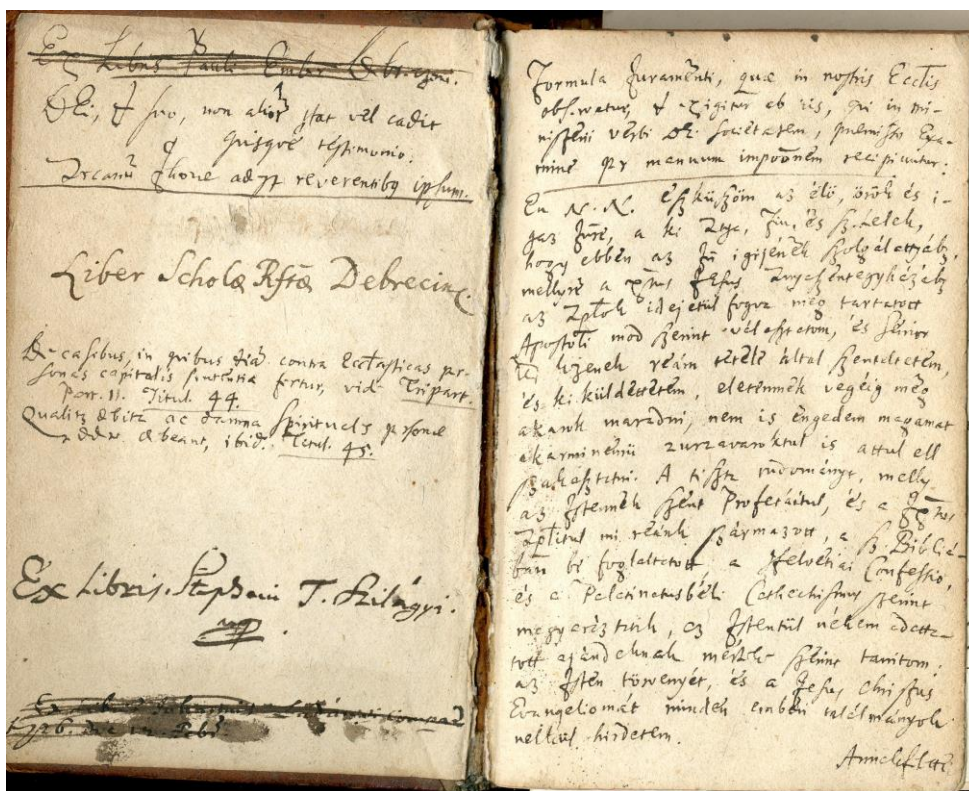 Ex Libris Pauli Ember Debreczeni.
Dei, & suo, non alior stat vel cadit
quisque testimonio.
Arcanū Jhovae adest reverentibq ipsum.
Liber Scholæ Rftæ Debrecin.
De casibus, in quibus contra Eccltasticas per-
sonas capitalis sententia fertur, vide Tripart.
Part. II. Titul. 44.
Qualiter debita ac damna Spirituales personæ
reddere debeant, ibid. Titul. 45.
Ex Libris Stephani T. Szilágyi.
mp
Ex Libris
1726. die 12 Febr
Formula Juramenti, quæ in nostris Ecclis
observatur, & exigitur ab iis, qui in mi-
nisterii verbi Dei societatem, præmisso Exa-
mine per manuum impoōnem recipiuntur.
En N. N. esküszöm az élö, örök és i-
gaz Jstēre, a ki Atya, Fiu, és Sz. Lélek,
hogy ebben az Jstē igijének szolgálattyáb,
mellyre a Jesus Anyaszentegyházáb
az Aplok idejetül fogva meg tartatott
Apostoli mod szerint választatom, és Senior
Ur kezenek reám tétele által szenteltetem,
és ki küldettetem, eletemnek végéig meg
akarok maradni, nem is engedem magamat
akarminémü zurzavaroktul is attul ell
szakasztatni. A tiszta tudományt, melly
az Istennek szent Profetáitul, és a
Aplitul mi reánk származott, a Sz. Bibliá-
ban bé foglaltatott, a Helvetiai Confessio,
és a Palatinatusbéli Cathechismus szerint
magyaráztatik, az Istentül nékem adatta-
tott ajándeknak mértéke szerint tanitom:
az Isten törvenyét, és a Jesus Christus
Evangeliomát minden emberi találmányok
nelkül hirdetem.